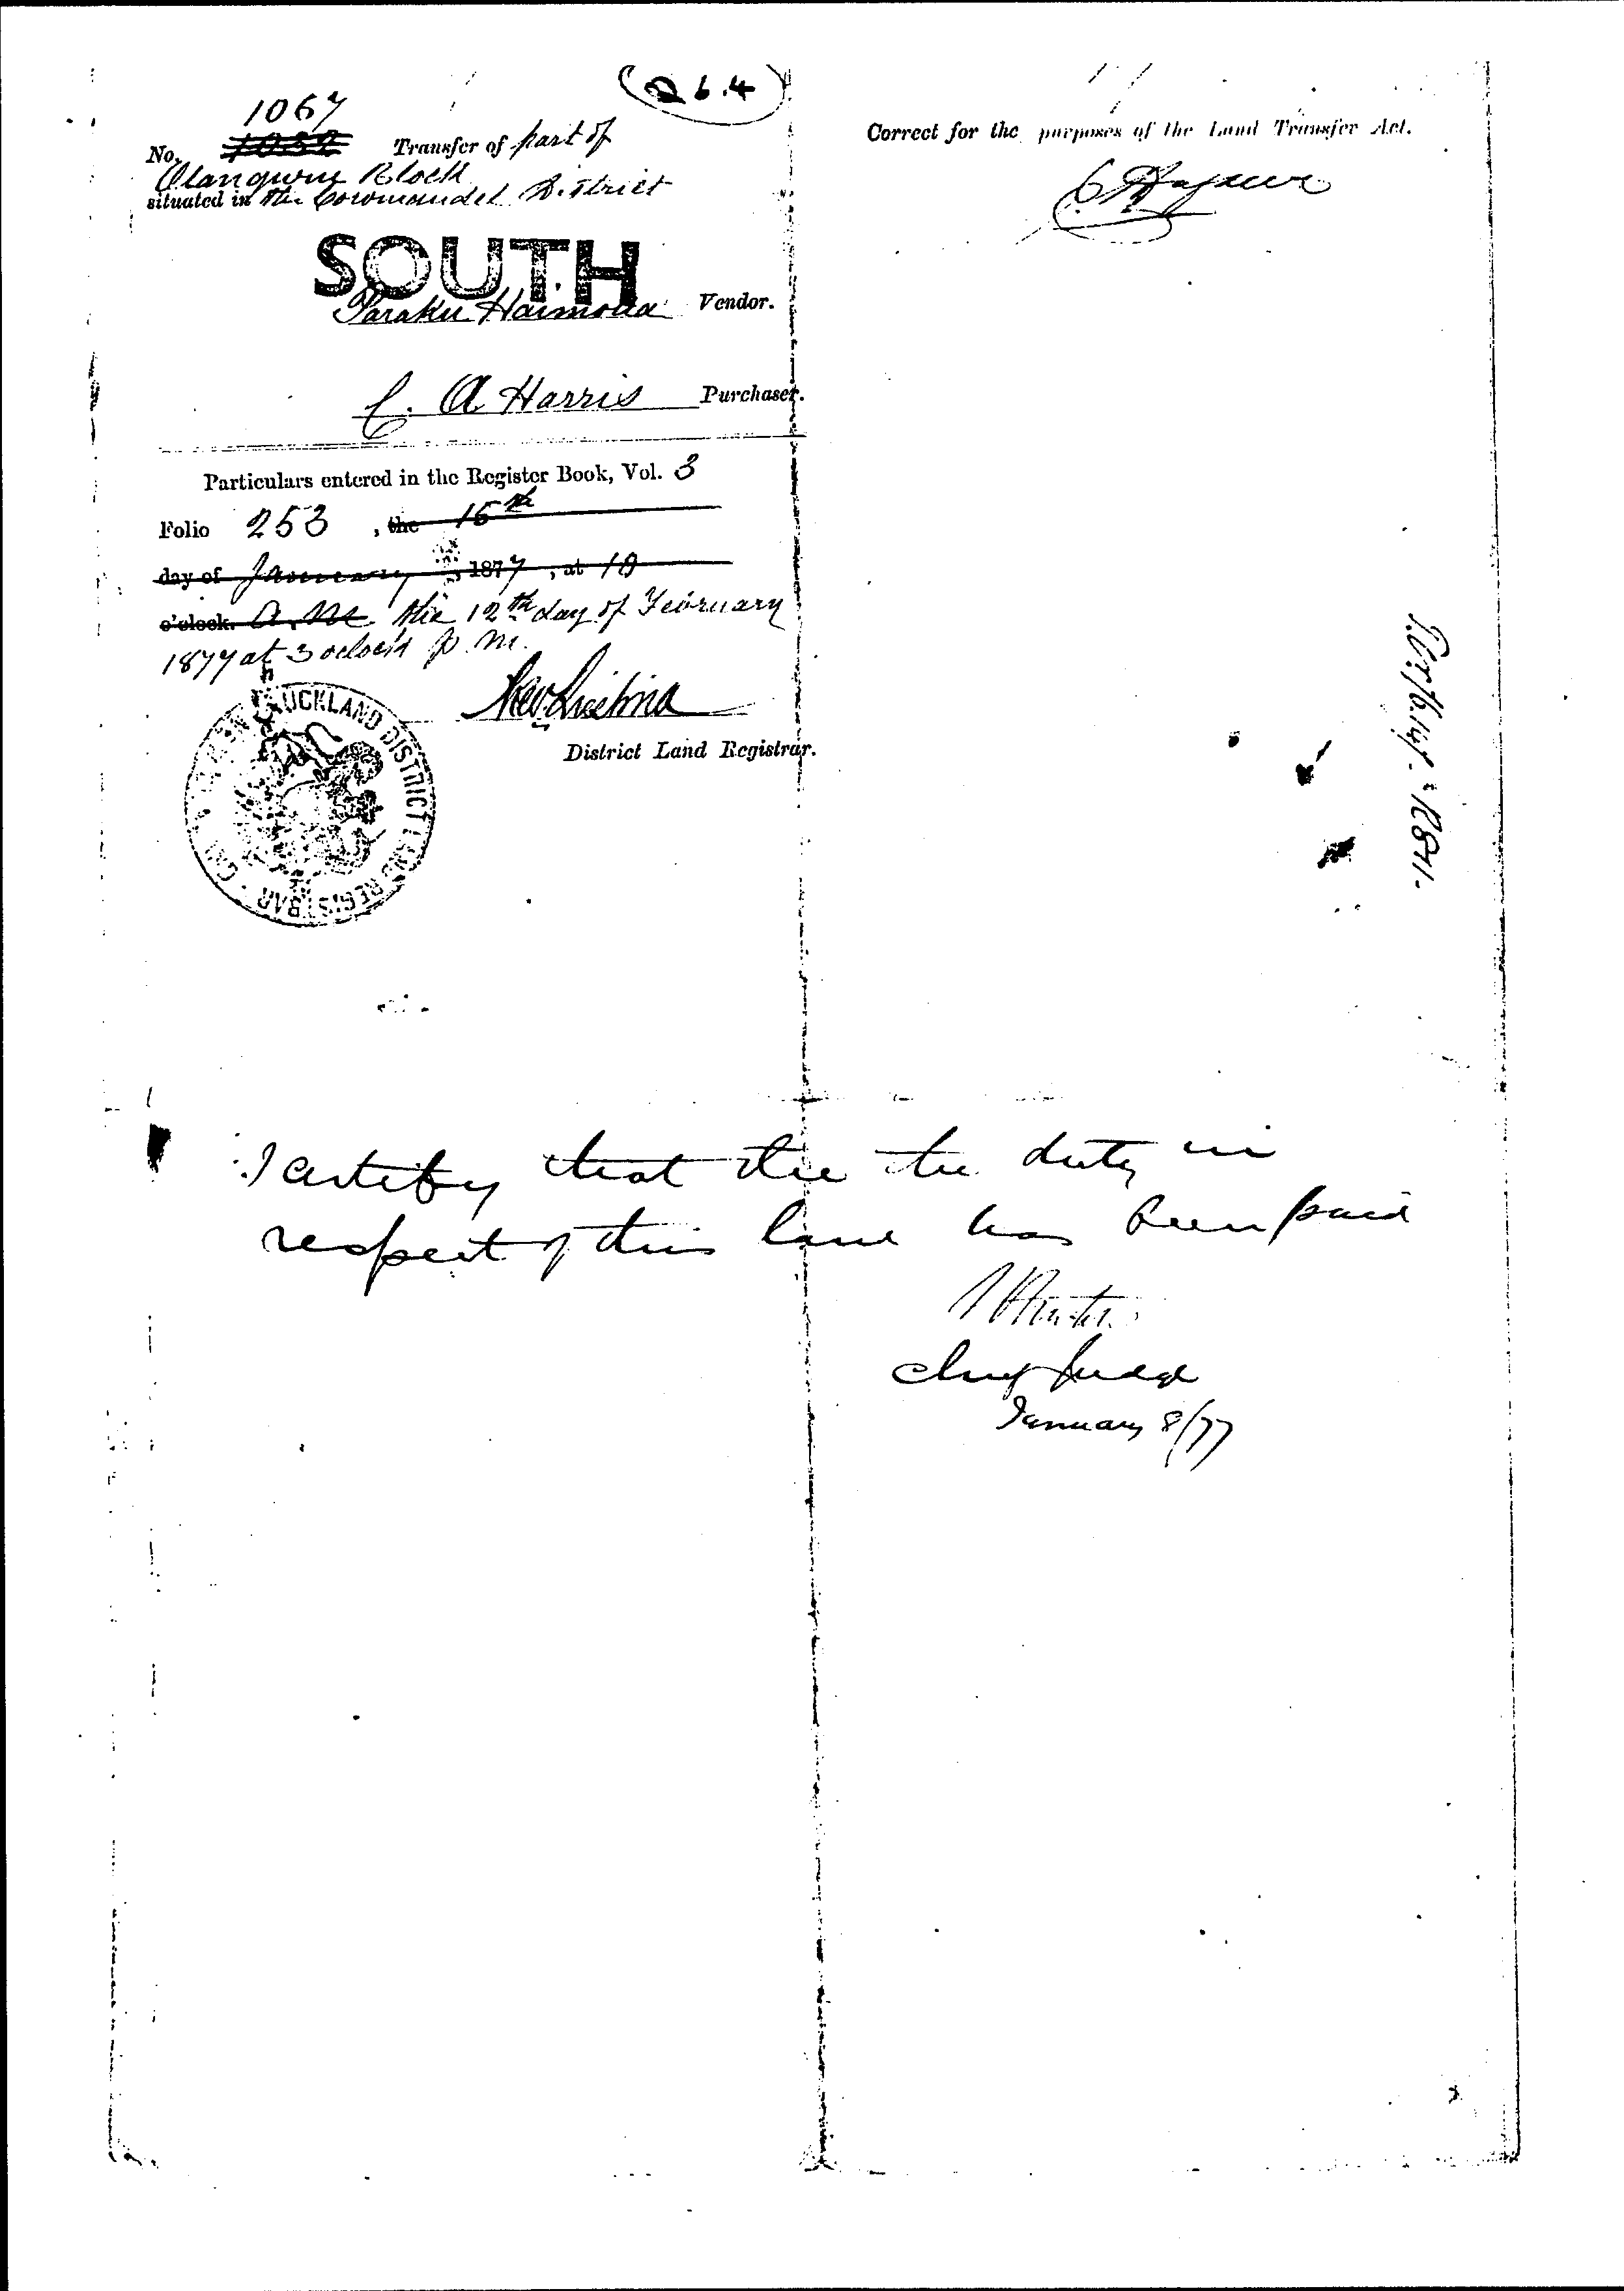 (26.4)
1067
No. 1052 Transfer of part of
Block
situated in the Coromandel District
SOUTH
Paraku Haimona Vendor.
C. A Harris Purchaser.
Particulars entered in the Register Book, Vol. 3
Folio 253 , the 15th
day of January , 1877 , at 10
o'clock. A.M. the 12th day of February
1877 at 3 oclock p.m.
District Land Registrar.
AUCKLAND DISTRICT LAND REGISTRAR
Correct for the purposes of the Land Transfer Act.
I certify that the the duty in
respect of this land has been paid
Chief Judge
January 8/77